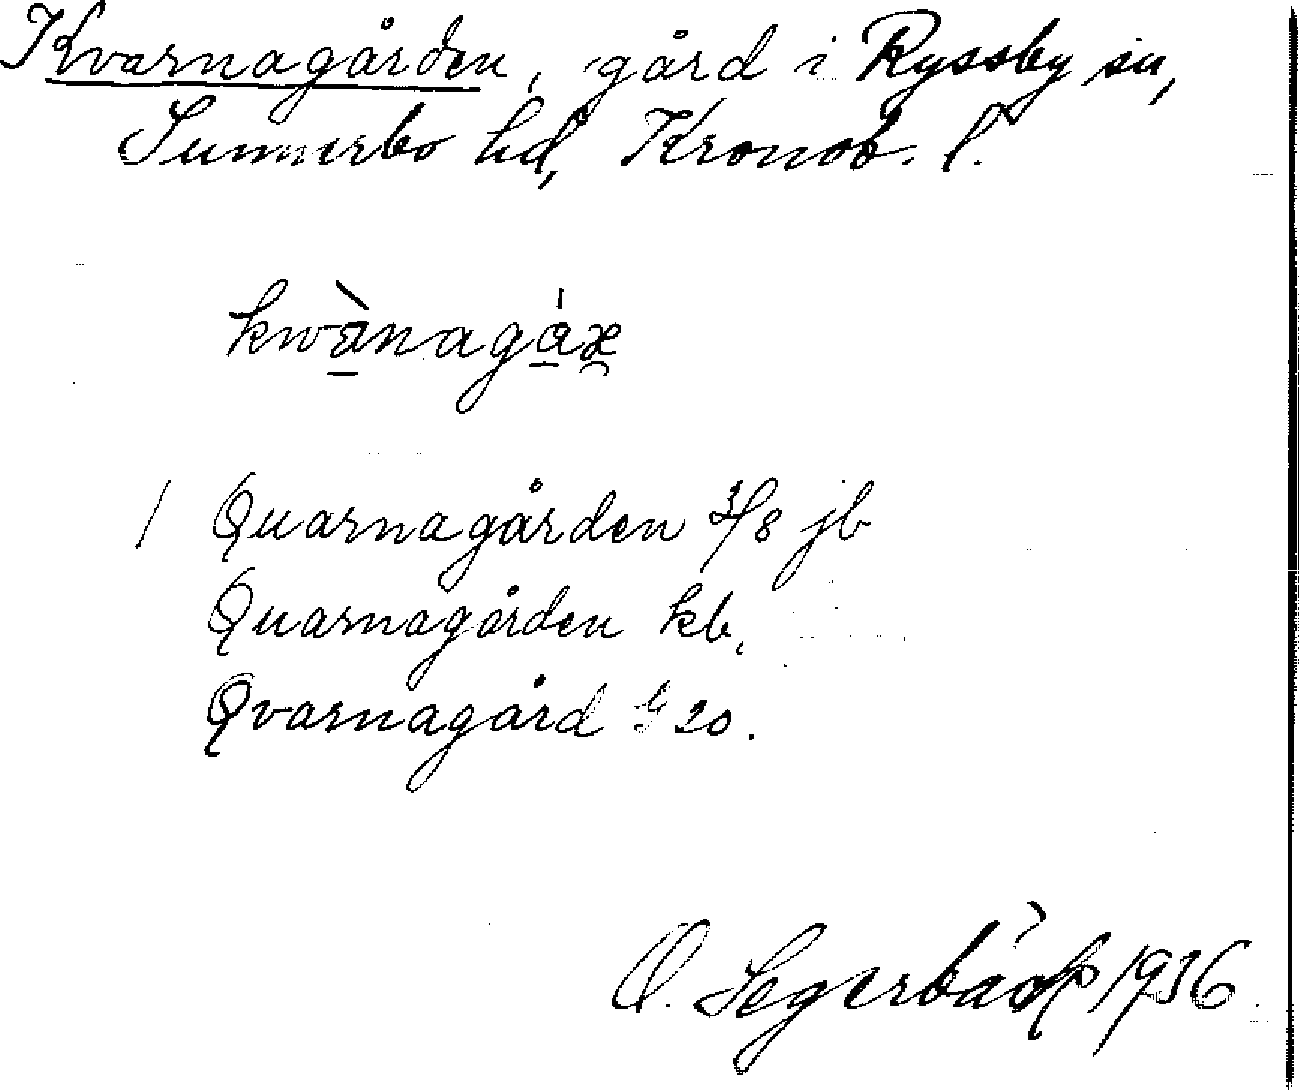 Kvarnagården, gård i Ryssby sn,
Sunnerbo hd, Kronob. l.
kwànagáræ
1 Quarnagården 3/8 jb
Quarnagården kb.
Qvarnagård G 20.
O. Segerbäck 1936.